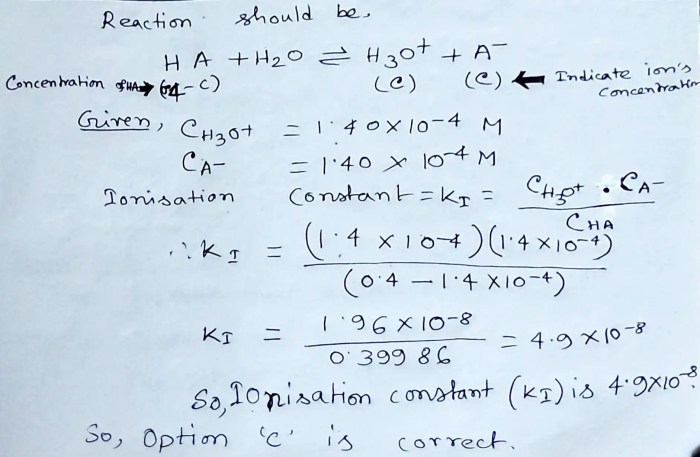 Reaction should be,
HA + H2O ⇌ H3O+ + A-
Concentration of HA → (0.4-C) (C) (C) ← Indicate ion's concentration
Given, CH3O+ = 1.40 x 10-4 M
CA- = 1.40 x 10-4 M
Ionisation Constant = KI = CH3O+ . CA- / CHA
∴ KI = (1.4 x 10-4)(1.4 x 10-4) / (0.4 - 1.4 x 10-4)
KI = 1.96 x 10-8 / 0.39986 = 4.9 x 10-8
So, Ionisation constant (KI) is 4.9x10-8.
So, Option 'C' is correct.